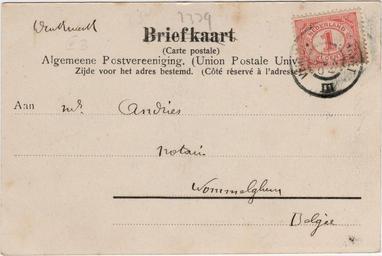 2779
Briefkaart
(Carte postale)
Algemeene Postvereeniging. (Union Postale Univ
Zijde voor het adres bestemd. (Côté réservé à l'adresse
NEDERLAND
1
CENT
III
Aan Mr. Andries
notaire
Wommelghem
Belgie